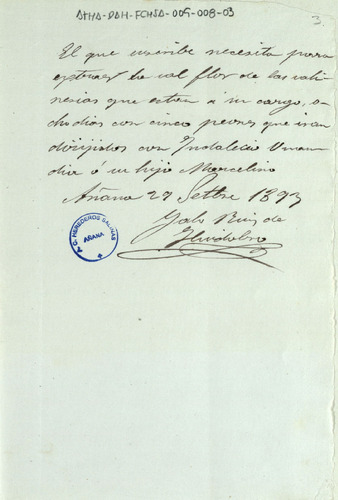 ATHA-DAH-FCHSA-009-008-03
3.
El que suscribe necesita para
extraer la sal flor de las sali-
nerias que estan á su cargo, o-
cho dias con cinco peones que iran
dirijidos con Indalecio
dia ó su hijo Marcelino
Añana 27 Settre 1893
Galo Ruiz de
Huidobro
A. G. HEREDEROS SALINAS
AÑANA